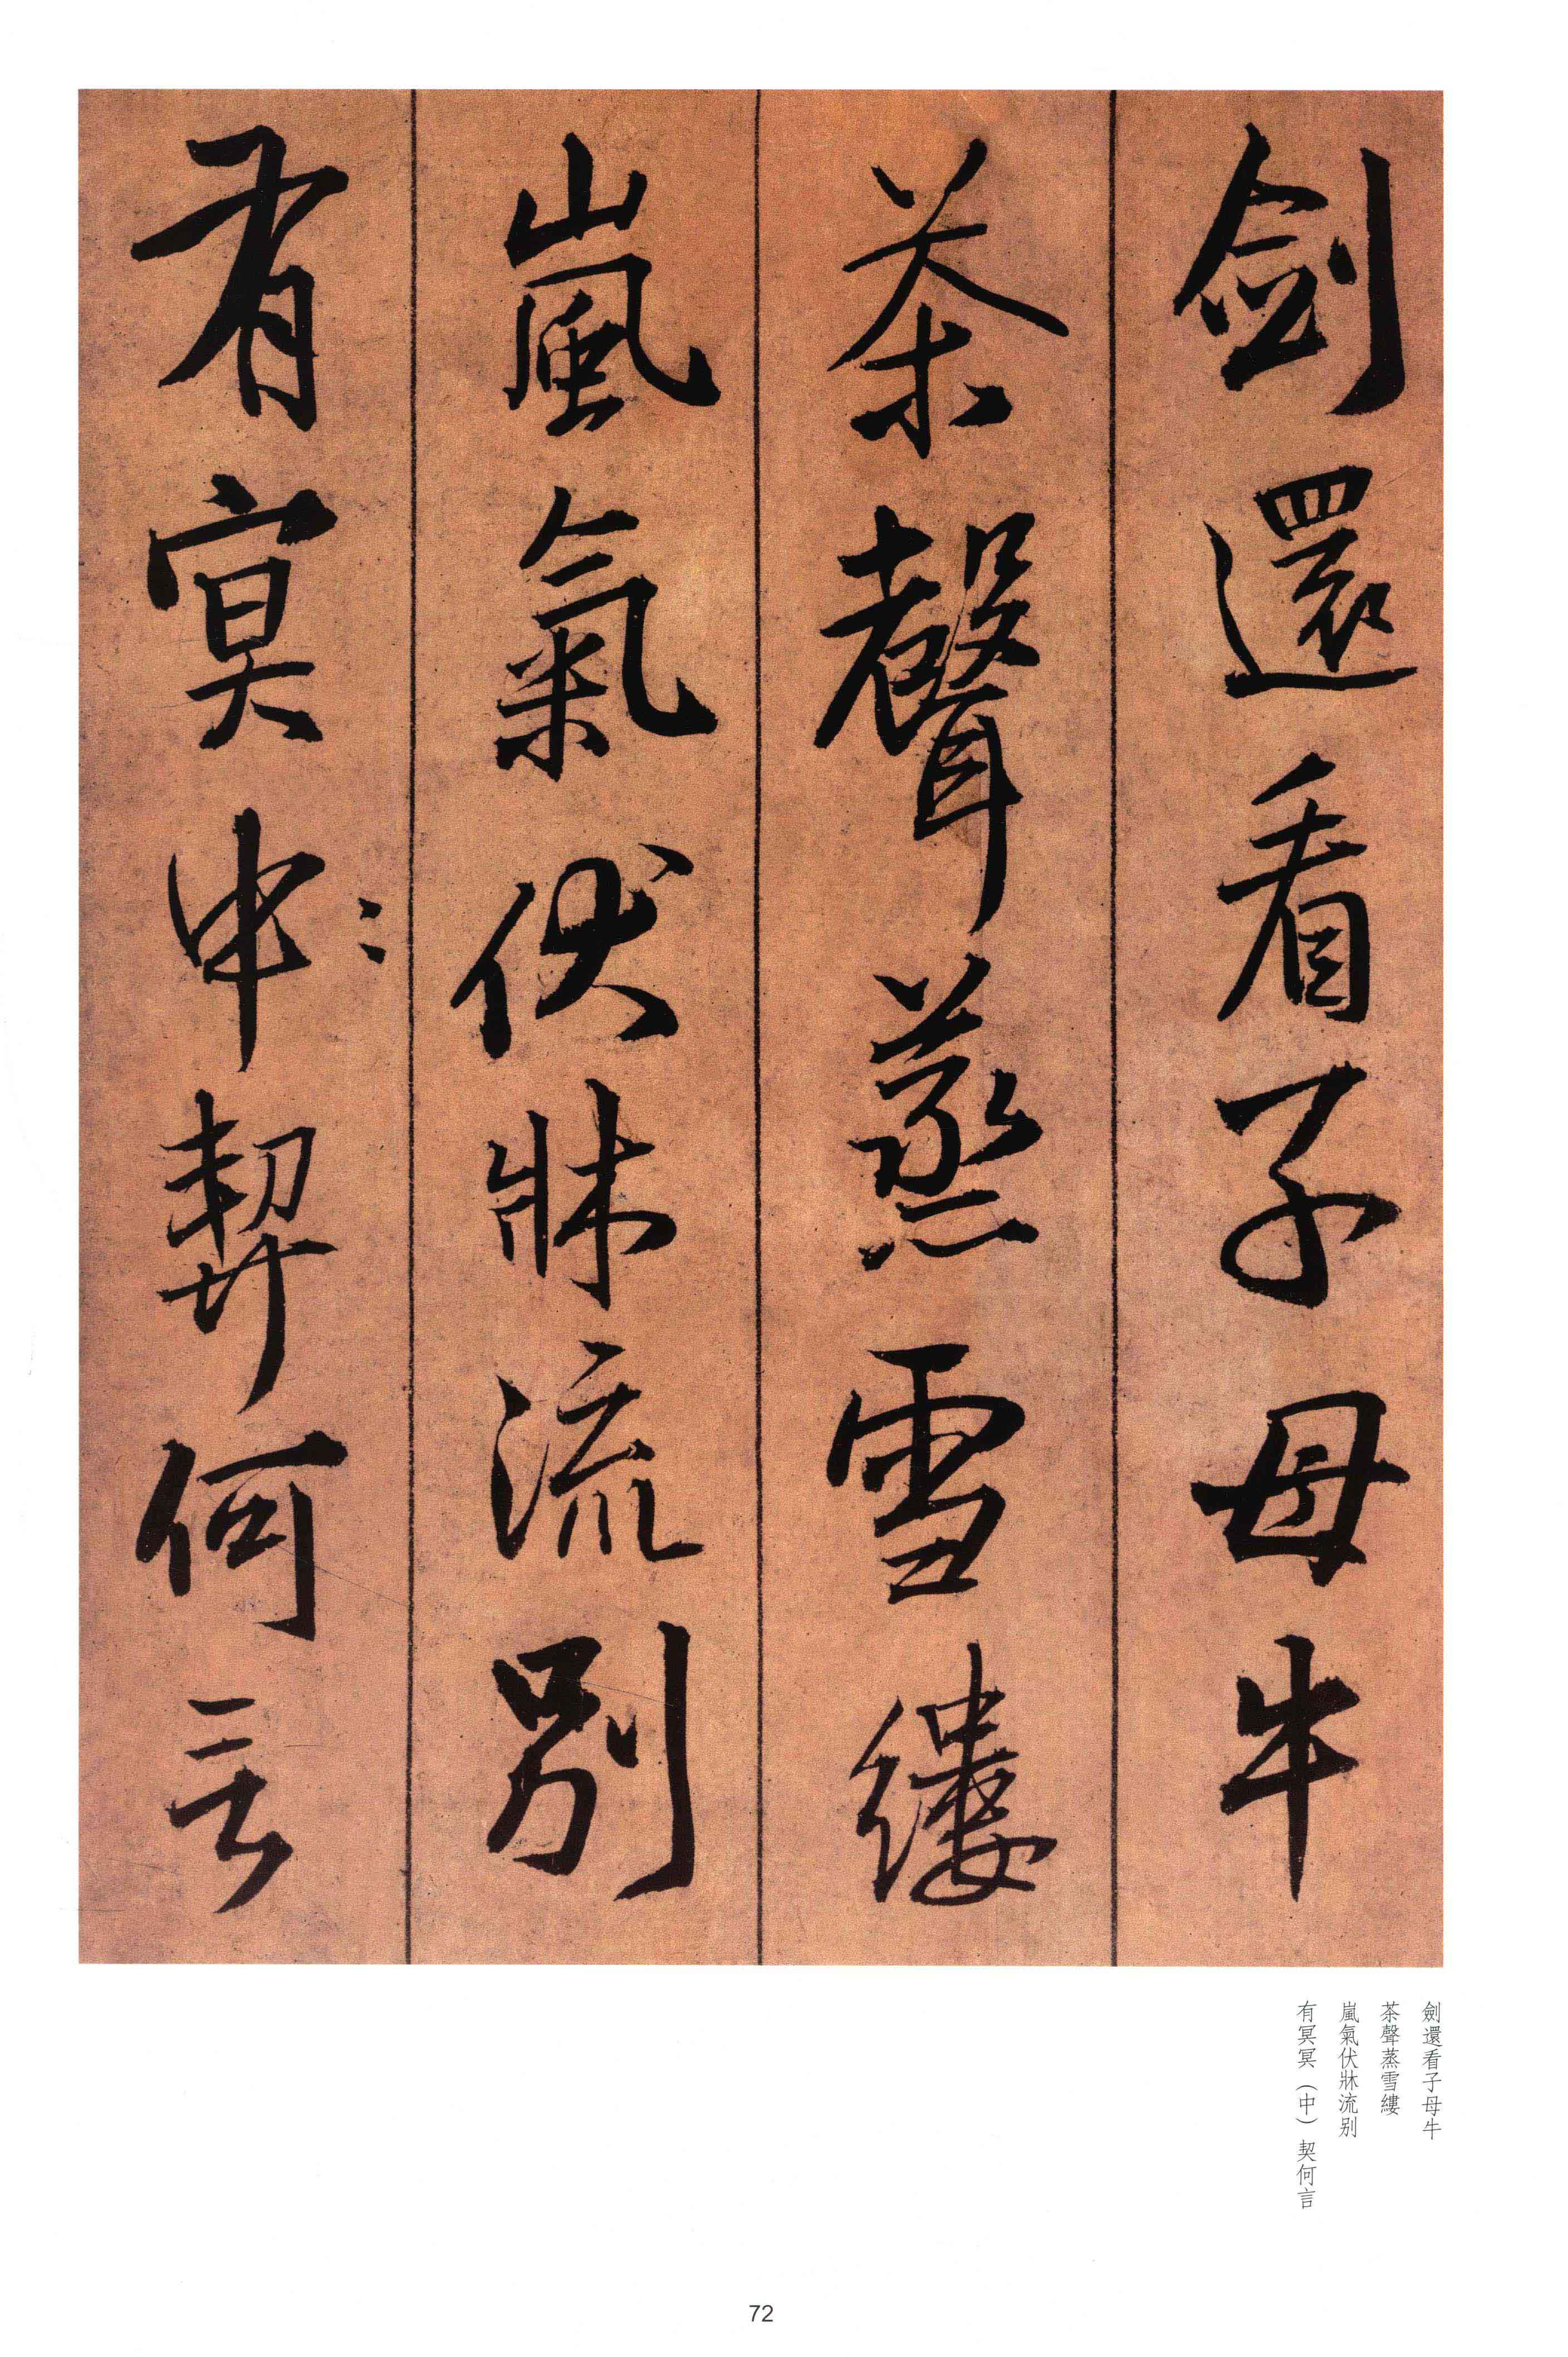 劍還看子母牛
茶聲蒸雪縷
嵐氣伏牀流别
有冥中〻契何言
劍還看子母牛
茶聲蒸雪縷
嵐氣伏牀流别
有冥冥（中）契何言
72